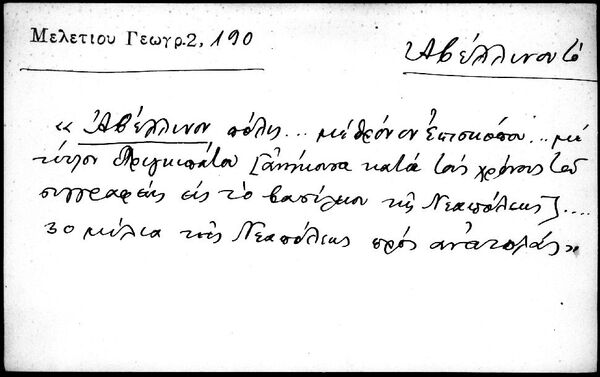 Μελετίου Γεωγρ. 2, 190
Ἀβέλλινον τὸ
« Ἀβέλλινον πόλις... μὲ θρόνον Ἐπισκόπου... μὲ
τίτλον Πριγκιπάτου [ἀνήκουσα κατὰ τοὺς χρόνους τοῦ
συγγραφέως εἰς τὸ βασίλειον τῆς Νεαπόλεως]....
30 μίλια τῆς Νεαπόλεως πρὸς ἀνατολάς»